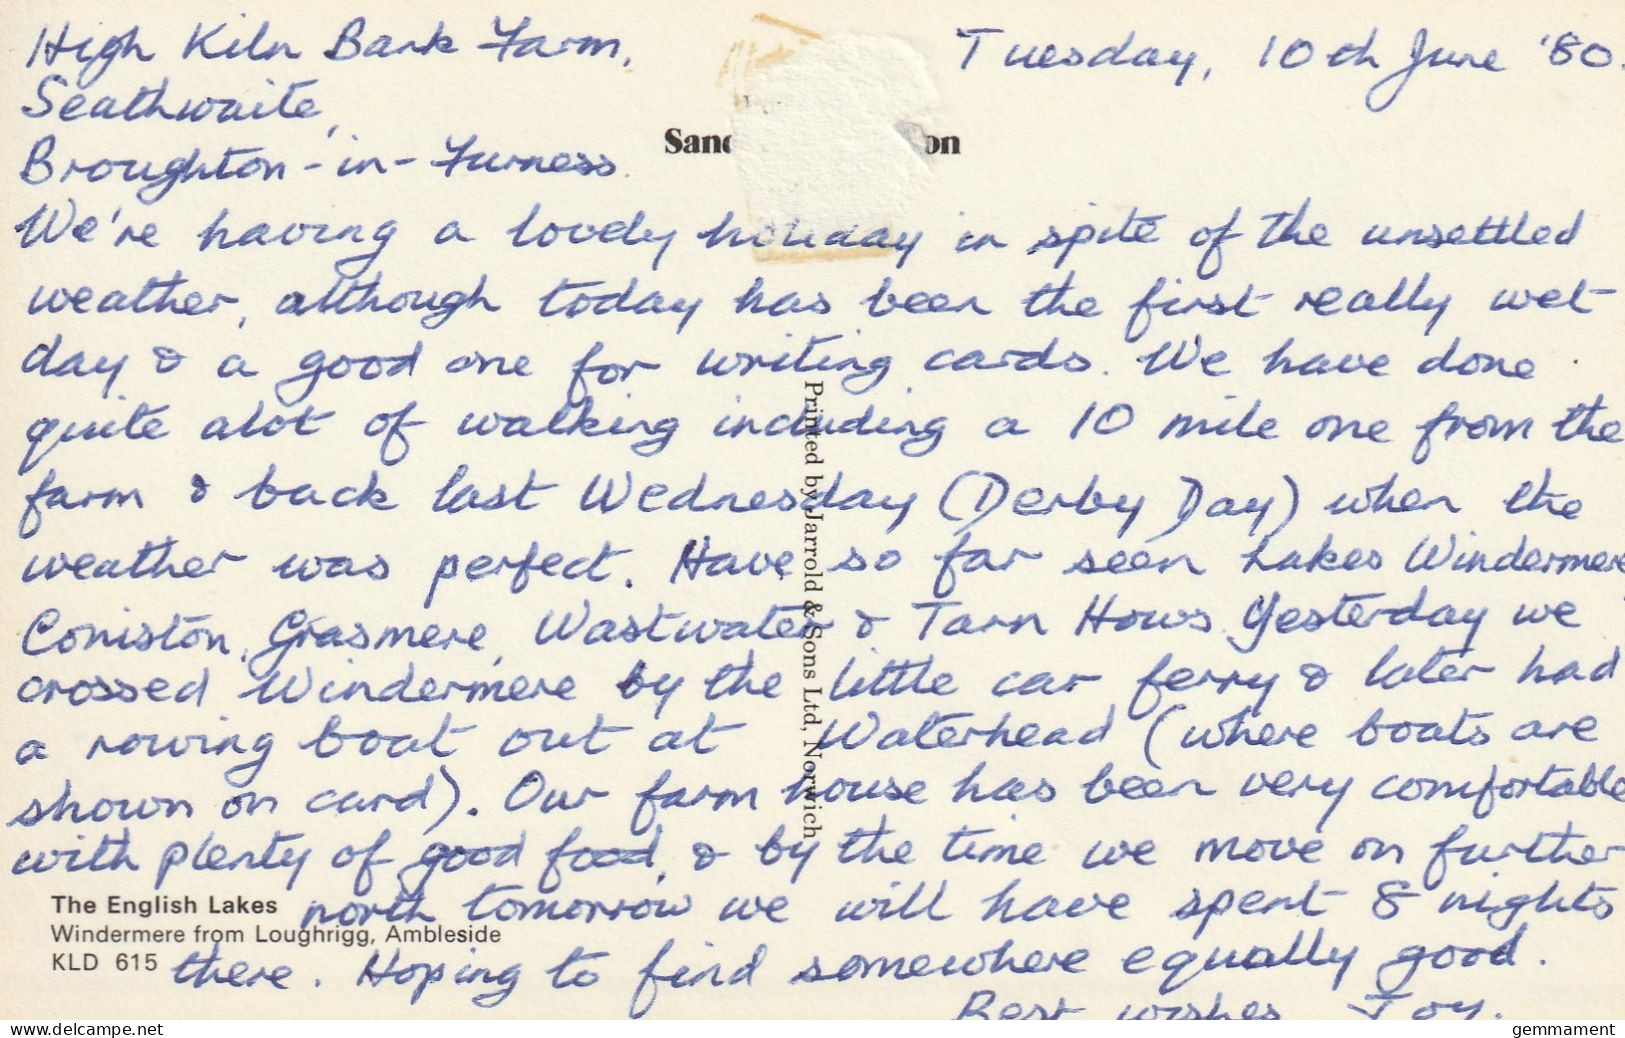 High Kiln Bank Farm,
Tuesday, 10th June '80.
Seathwaite,
Broughton-in-Furness.
We're having a lovely holiday in spite of the unsettled
weather, although today has been the first really wet
day & a good one for writing cards. We have done
quite alot of walking including a 10 mile one from the
farm & back last Wednesday (Derby Day) when the
weather was perfect. Have so far seen Lakes Windermere
Coniston, Grasmere, Wastwater & Tarn Hows. Yesterday we
crossed Windermere by the little car ferry & later had
a rowing boat out at Waterhead (where boats are
shown on card). Our farm house has been very comfortable
with plenty of good food, & by the time we move on further
north tomorrow we will have spent 8 nights
there. Hoping to find somewhere equally good.
Best wishes Joy.
Printed by Jarrold & Sons Ltd, Norwich
The English Lakes
Windermere from Loughrigg, Ambleside
KLD 615
delcampe.net
gemmament